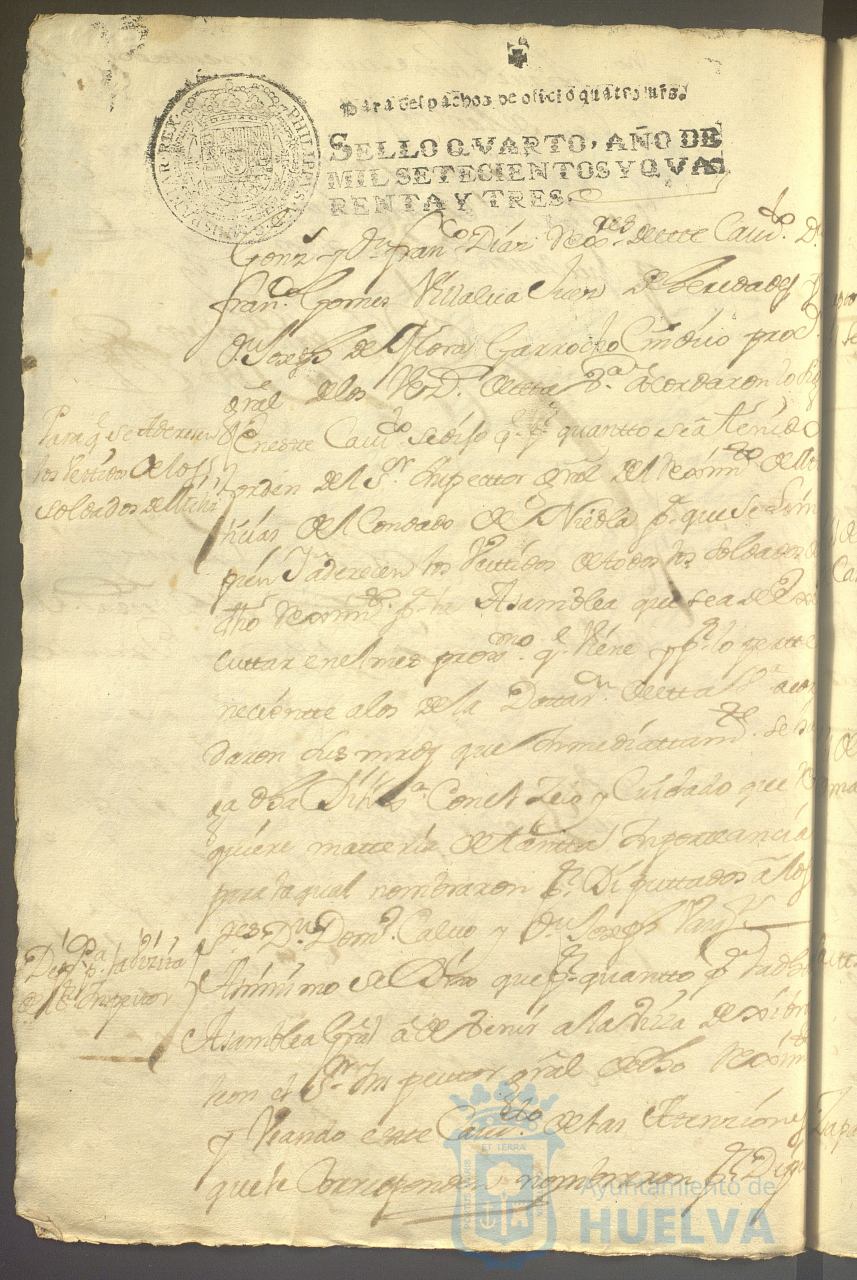 Para despachos de oficio quatro mrs.
SELLO QVARTO, AÑO DE
MIL SETECIENTOS Y QVA
RENTA Y TRES.
PHILIPPUS V D G HISPANIAR REX
Gonz. y Dn. Franco. Díaz Rexres. de este Cavdo. D.
Franco. Gomes Villalva Juez de heredades y
Dn. Joseph de Mora Garrocho Cindico proc.
Gral de los Vz. de esta Va. acordaron lo sig
Para q se aderesen
los Vestidos de los
soldados de Mili
En este Cavdo. se dijo q. pr. quantto se a tenido
orden del Sr. Inspector Gral del Reximto. de Mi
licias del Condado de Niebla pa. que se lim
pien y aderecen los Vestidos de todos los soldados de
dho Reximto. pa. la Asamblea que se a de exe
cuttar en el mes proxmo. q. viene y pr. lo perte
neciente a los de la Dottan. de esta Va. acor
daron sus mrds que inmediattamte. se
ga dha Dilixa. con el zelo y Cuidado que re
quiere matteria de tantta Importtancia
para la qual nombraron pr. Diputtados a los
sres Dn. Domo. Calvo y Dn. Joseph
Dipdos. pa. la visita
del Sr. Inspector
Asimismo se Dixo que pr. quantto pa. la dha
Asamblea Gral a de venir a la Villa de
leon el Sr. Inspector gral de dho Reximto
y Usando este Cavdo. de las Atenciones
que le Corresponden nombraron pr. Dipu
ET TERRA
Ayuntamiento de
HUELVA